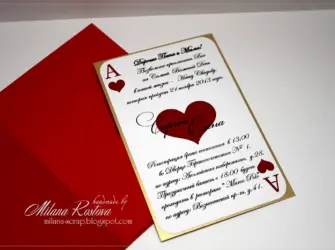 A
Дорогие Паша и Милана!
Позвольте пригласить Вас
на Самый Важный День
в нашей жизни - Нашу Свадьбу,
которая пройдет 21 ноября 2013 года.
Регистрация брака состоится в 13.00
во Дворце Бракосочетания № 1,
по адресу: Английская набережная, д. 28.
Праздничный банкет в 18.00 будет
проходить в ресторане
по адресу: Вознесенский пр-т, д. 41.
A
handmade by
Milana Roslova
milana-scrap.blogspot.com